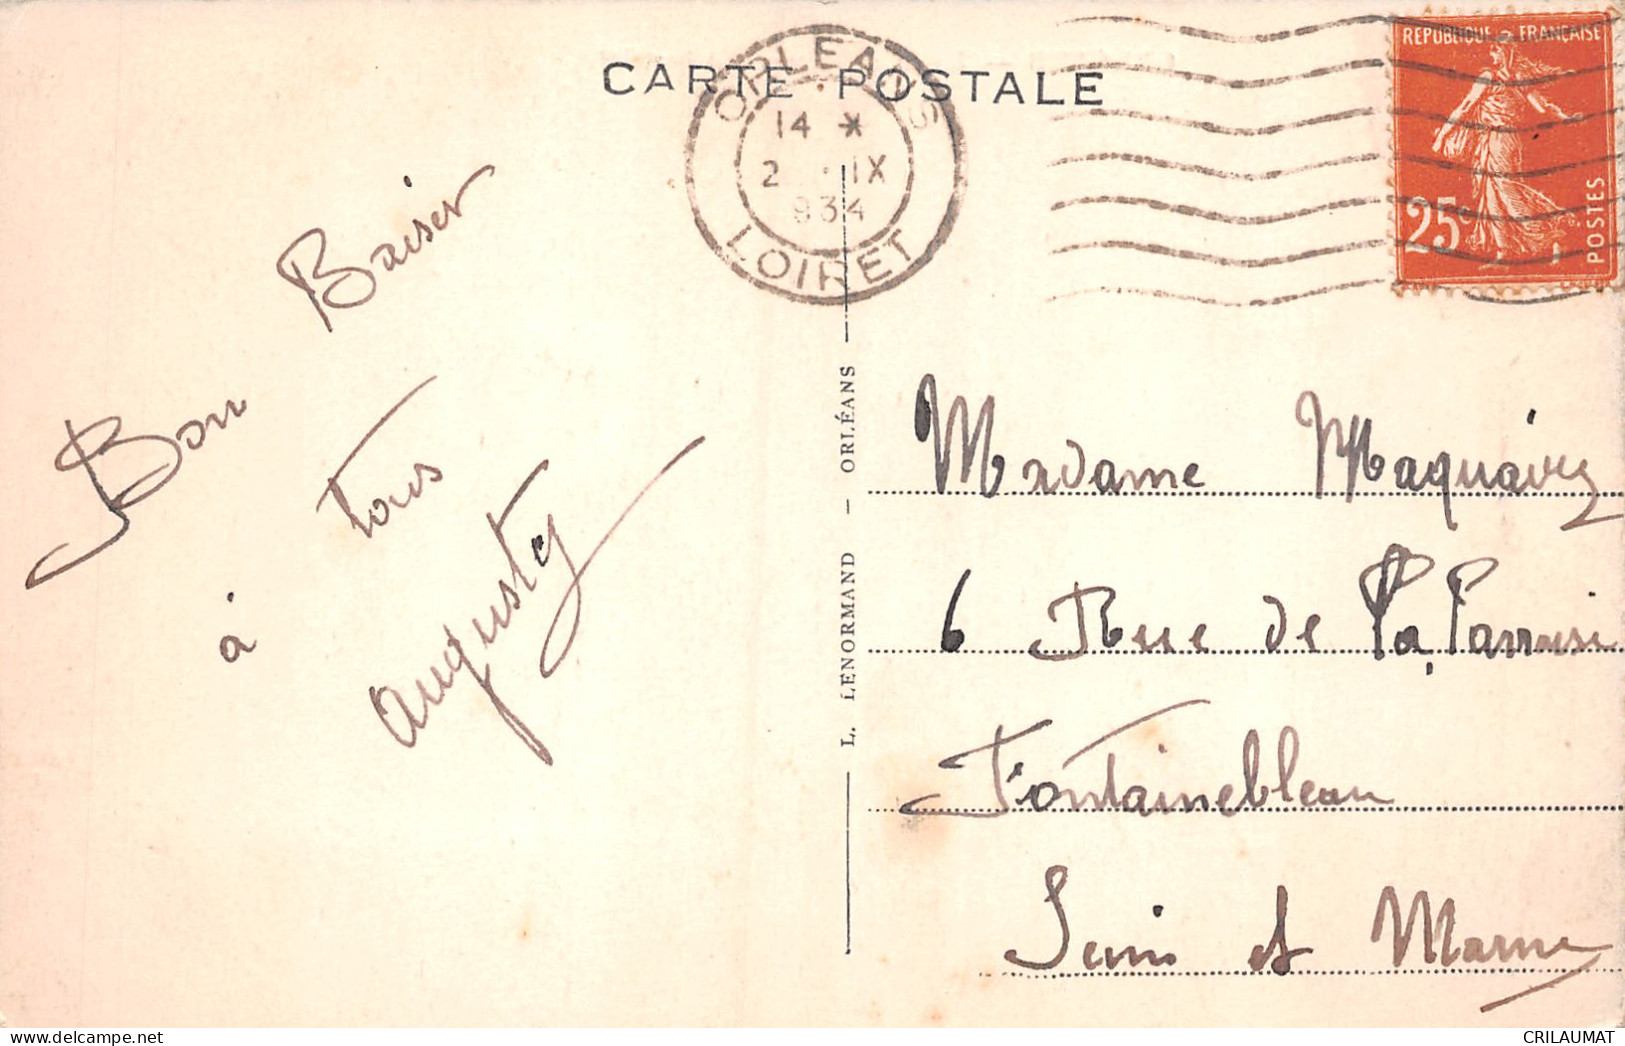 CARTE POSTALE
ORLEANS
14 *
2 · IX
934
LOIRET
REPUBLIQUE FRANÇAISE
25c
POSTES
Bon Baiser
à Tous
Augusty
L. LENORMAND – ORLÉANS
Madame
6 Rue de La Paroisse
Fontainebleau
Seine et Marne
CRILAUMAT